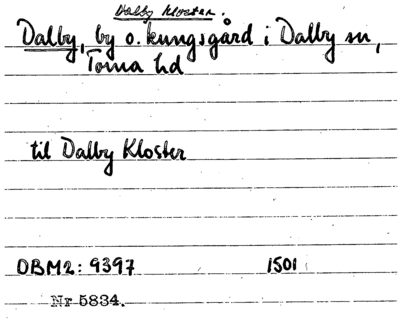 Dalby Kloster.
Dalby, by o. kungsgård i Dalby sn,
Torna hd
til Dalby Kloster
DBM2: 9397 1501
Nr 5834.